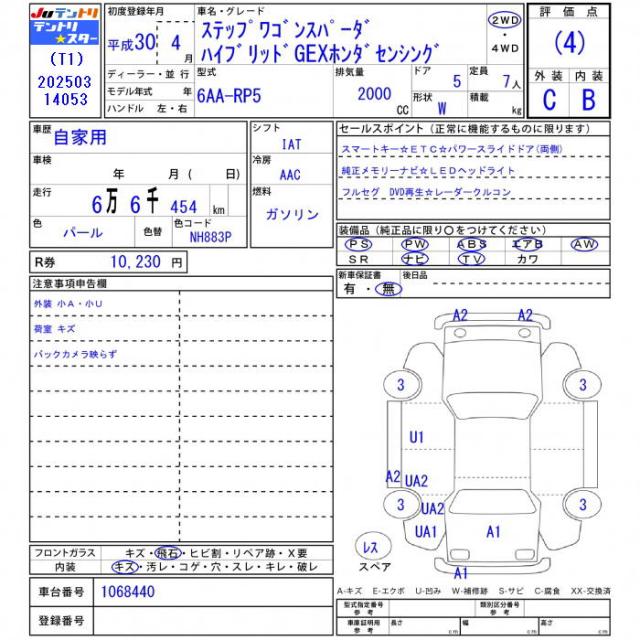 JUテントリ
テントリ
★スター
(T1)
202503
14053
初度登録年月
平成30年 4月
車名・グレード
ステップワゴンスパーダ
ハイブリッドGEXホンダセンシング
2WD
・
4WD
評価点
(4)
外装 内装
C B
ディーラー・並行
モデル年式 年
ハンドル 左・右
型式
6AA-RP5
排気量
2000 CC
ドア
5
形状
W
定員
7人
積載
kg
車歴
自家用
車検
年 月( 日)
走行
6万 6千 454 km
色
パール
色替
色コード
NH883P
シフト
IAT
冷房
AAC
燃料
ガソリン
R券 10,230 円
セールスポイント(正常に機能するものに限ります)
スマートキー☆ETC☆パワースライドドア(両側)
純正メモリーナビ☆LEDヘッドライト
フルセグ DVD再生☆レーダークルコン
装備品(純正品に限り〇をつけてください)
PS PW ABS エアB AW
SR ナビ TV カワ
新車保証書
有・無
後日品
注意事項申告欄
外装 小A・小U
荷室 キズ
バックカメラ映らず
A2 A2
3 3
U1
A2 UA2
3 UA2 3
UA1 A1
レス
スペア
A1
フロントガラス キズ・飛石・ヒビ割・リペア跡・X要
内装 キズ・汚レ・コゲ・穴・スレ・キレ・破レ
車台番号 1068440
登録番号
A-キズ E-エクボ U-凹み W-補修跡 S-サビ C-腐食 XX-交換済
型式指定番号
参考
類別区分番号
参考
車庫証明用
参考
長さ cm
幅 cm
高さ cm